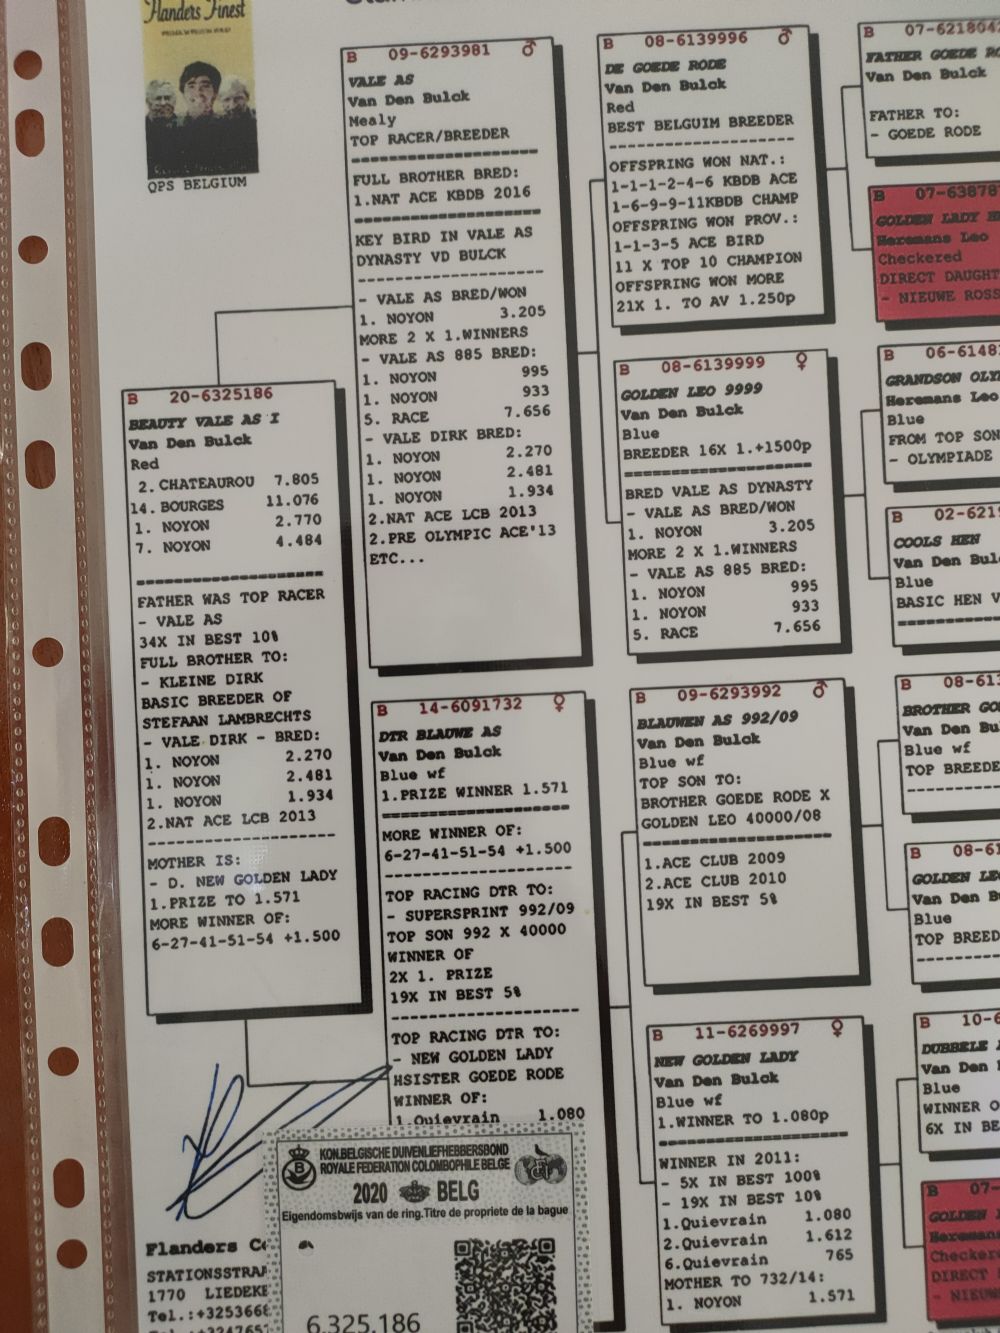 Flanders Finest
QPS BELGIUM
B 20-6325186
BEAUTY VALE AS I
Van Den Bulck
Red
2. CHATEAUROU 7.805
14. BOURGES 11.076
1. NOYON 2.770
7. NOYON 4.484
FATHER WAS TOP RACER
- VALE AS
34X IN BEST 10%
FULL BROTHER TO:
- KLEINE DIRK
BASIC BREEDER OF
STEFAAN LAMBRECHTS
- VALE DIRK - BRED:
1. NOYON 2.270
1. NOYON 2.481
1. NOYON 1.934
2.NAT ACE LCB 2013
MOTHER IS:
- D. NEW GOLDEN LADY
1.PRIZE TO 1.571
MORE WINNER OF:
6-27-41-51-54 +1.500
B 09-6293981 ♂
VALE AS
Van Den Bulck
Mealy
TOP RACER/BREEDER
FULL BROTHER BRED:
1.NAT ACE KBDB 2016
KEY BIRD IN VALE AS
DYNASTY VD BULCK
- VALE AS BRED/WON
1. NOYON 3.205
MORE 2 X 1.WINNERS
- VALE AS 885 BRED:
1. NOYON 995
1. NOYON 933
5. RACE 7.656
- VALE DIRK BRED:
1. NOYON 2.270
1. NOYON 2.481
1. NOYON 1.934
2.NAT ACE LCB 2013
2.PRE OLYMPIC ACE'13
ETC...
B 14-6091732 ♀
DTR BLAUWE AS
Van Den Bulck
Blue wf
1.PRIZE WINNER 1.571
MORE WINNER OF:
6-27-41-51-54 +1.500
TOP RACING DTR TO:
- SUPERSPRINT 992/09
TOP SON 992 X 40000
WINNER OF
2X 1. PRIZE
19X IN BEST 5%
TOP RACING DTR TO:
- NEW GOLDEN LADY
HSISTER GOEDE RODE
WINNER OF:
1.Quievrain 1.080
B 08-6139996 ♂
DE GOEDE RODE
Van Den Bulck
Red
BEST BELGUIM BREEDER
OFFSPRING WON NAT.:
1-1-1-2-4-6 KBDB ACE
1-6-9-9-11KBDB CHAMP
OFFSPRING WON PROV.:
1-1-3-5 ACE BIRD
11 X TOP 10 CHAMPION
OFFSPRING WON MORE
21X 1. TO AV 1.250p
B 08-6139999 ♀
GOLDEN LEO 9999
Van Den Bulck
Blue
BREEDER 16X 1.+1500p
BRED VALE AS DYNASTY
- VALE AS BRED/WON
1. NOYON 3.205
MORE 2 X 1.WINNERS
- VALE AS 885 BRED:
1. NOYON 995
1. NOYON 933
5. RACE 7.656
B 09-6293992 ♂
BLAUWEN AS 992/09
Van Den Bulck
Blue wf
TOP SON TO:
BROTHER GOEDE RODE X
GOLDEN LEO 40000/08
1.ACE CLUB 2009
2.ACE CLUB 2010
19X IN BEST 5%
B 11-6269997 ♀
NEW GOLDEN LADY
Van Den Bulck
Blue wf
1.WINNER TO 1.080p
WINNER IN 2011:
- 5X IN BEST 100%
- 19X IN BEST 10%
1.Quievrain 1.080
2.Quievrain 1.612
6.Quievrain 765
MOTHER TO 732/14:
1. NOYON 1.571
B 07-6218042
FATHER GOEDE RO
Van Den Bulck
FATHER TO:
- GOEDE RODE
B 07-63878
GOLDEN LADY H
Heremans Leo
Checkered
DIRECT DAUGHT
- NIEUWE ROSS
B 06-6148
GRANDSON OLY
Heremans Leo
Blue
FROM TOP SON
- OLYMPIADE
B 02-621
COOLS HEN
Van Den Bul
Blue
BASIC HEN V
B 08-613
BROTHER GO
Van Den Bu
Blue wf
TOP BREEDE
B 08-61
GOLDEN LEO
Van Den B
Blue
TOP BREED
B 10-6
DUBBELE
Van Den B
Blue
WINNER O
6X IN BE
B 07-
GOLDEN
Heremans
Checkere
DIRECT
- NIEUWE
Flanders Co
STATIONSSTRAA
1770 LIEDEKE
Tel.:+3253668
KON.BELGISCHE DUIVENLIEFHEBBERSBOND
ROYALE FEDERATION COLOMBOPHILE BELGE
2020 BELG
Eigendomsbwijs van de ring.Titre de propriete de la bague
6.325.186